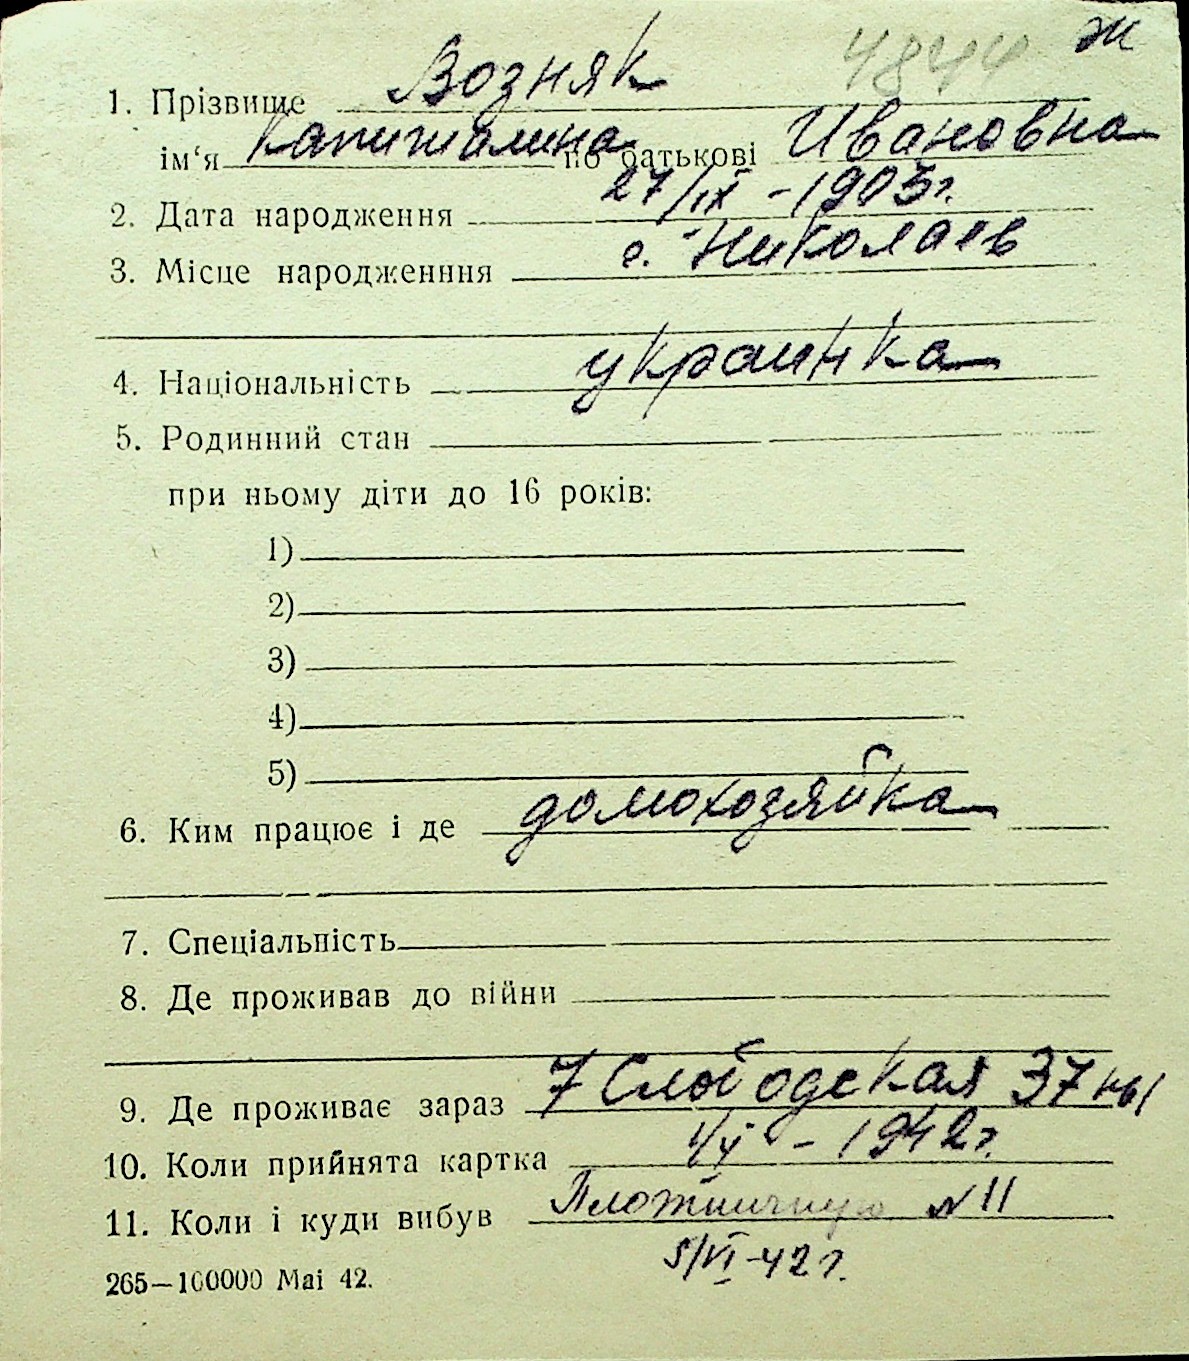 4844 ж
1. Прізвище Возняк
ім‘я Капиталина по батькові Ивановна
2. Дата народження 27/IX - 1903г.
3. Місце народженння г. Николаев
4. Національність украинка
5. Родинний стан
при ньому діти до 16 років:
1)
2)
3)
4)
5)
6. Ким працює і де домохозяйка
7. Спеціальність
8. Де проживав до війни
9. Де проживає зараз 7 Слободская 37
10. Коли прийнята картка - 1942г.
11. Коли і куди вибув Плотничную № 11
5/VI-42г.
265—100000 Mai 42.